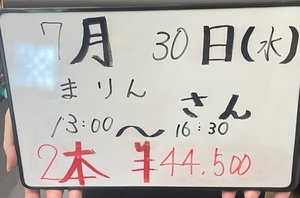 7月 30日(水)
まりん さん
13:00〜16:30
2本 ¥44,500